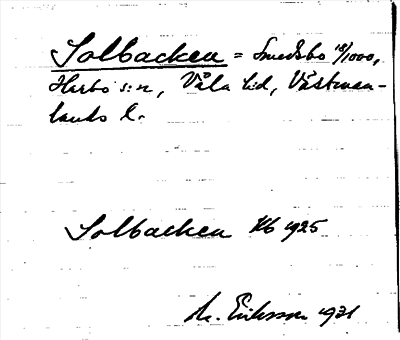 Solbacken = Smedsbo 18/1000,
Harbo s:n, Våla hd, Västman-
lands l.
Solbacken Kb 1925
M. Eriksson 1931